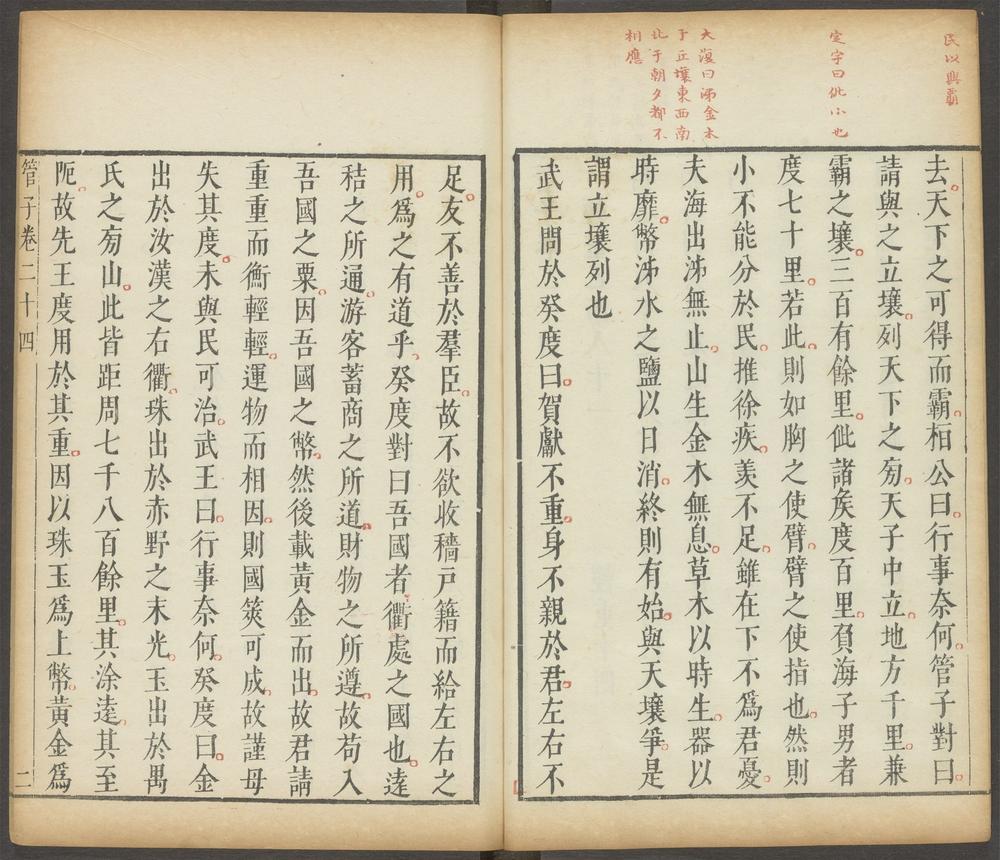 民以興霸
定宇曰仳小也
大復曰沸金木
于丘壤東西南
北于朝夕都不
相應
去天下之可得而霸桓公曰行事奈何管子對曰
請與之立壤列天下之㫄天子中立地方千里兼
霸之壤三百有餘里仳諸矦度百里負海子男者
度七十里若此則如胸之使臂臂之使指也然則
小不能分於民推徐疾羨不足雖在下不爲君憂
夫海出沸無止山生金木無息草木以時生器以
時靡幣沸水之鹽以日消終則有始與天壤爭是
謂立壤列也
武王問於癸度曰賀獻不重身不親於君左右不
足友不善於羣臣故不欲收穡戸籍而給左右之
用爲之有道乎癸度對曰吾國者衢處之國也遠
秸之所通游客蓄商之所道財物之所遵故苟入
吾國之粟因吾國之幣然後載黃金而出故君請
重重而衡輕輕運物而相因則國筴可成故謹毋
失其度未與民可治武王曰行事奈何癸度曰金
出於汝漢之右衢珠出於赤野之末光玉出於禺
氏之㫄山此皆距周七千八百餘里其涂遠其至
阨故先王度用於其重因以珠玉爲上幣黃金爲
管子卷二十四
二